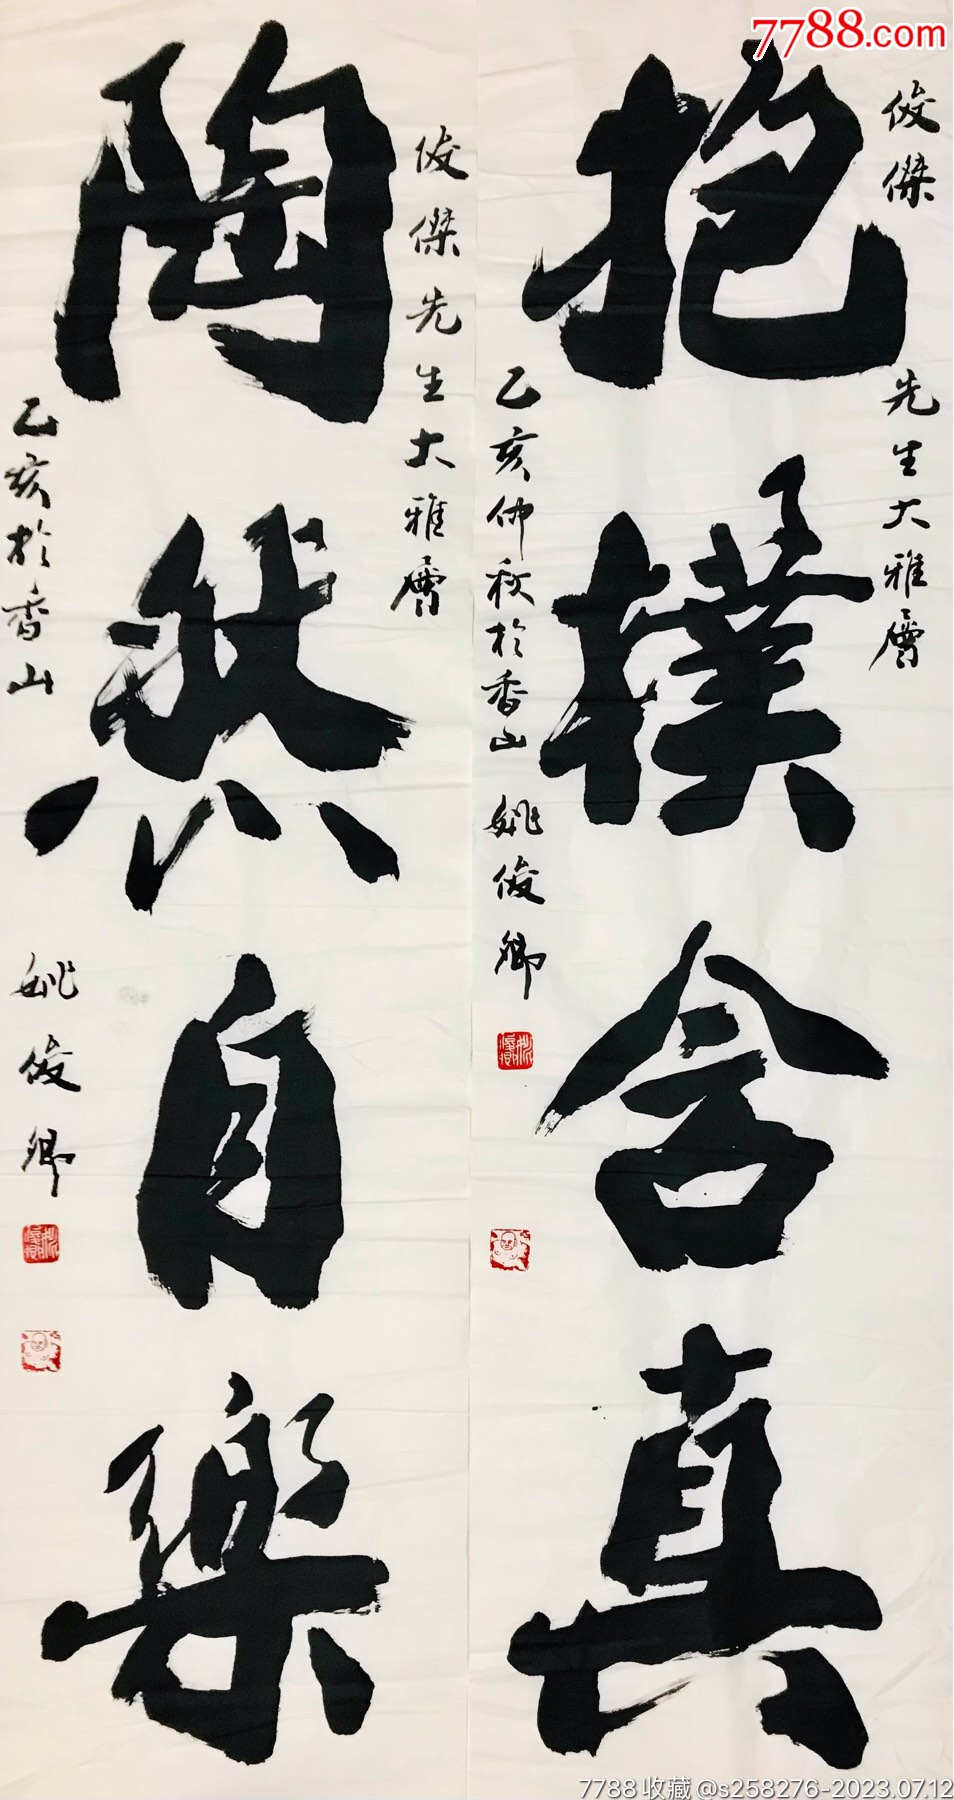 7788.com
俊傑
先生大雅屬
抱樸含真
乙亥仲秋於香山 姚俊卿
俊傑先生大雅屬
陶然自樂
乙亥於香山 姚俊卿
7788收藏@s258276-2023.07.12